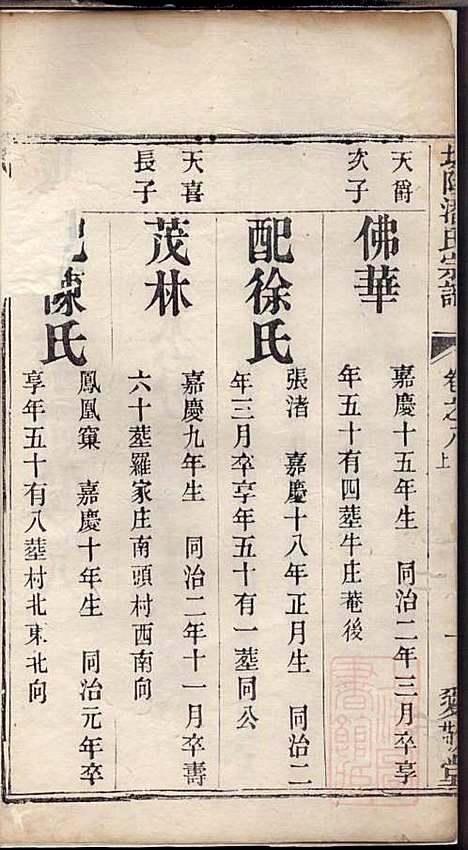 潘氏宗譜
卷之八上
天爵
次子
佛華
嘉慶十五年生 同治二年三月卒享
年五十有四塟牛庄菴後
配徐氏
張渚 嘉慶十八年正月生 同治二
年三月卒享年五十有一塟同公
天喜
長子
茂林
嘉慶九年生 同治二年十一月卒壽
六十塟羅家庄南頭村西南向
配陳氏
鳳凰窠 嘉慶十年生 同治元年卒
享年五十有八塟村北東北向